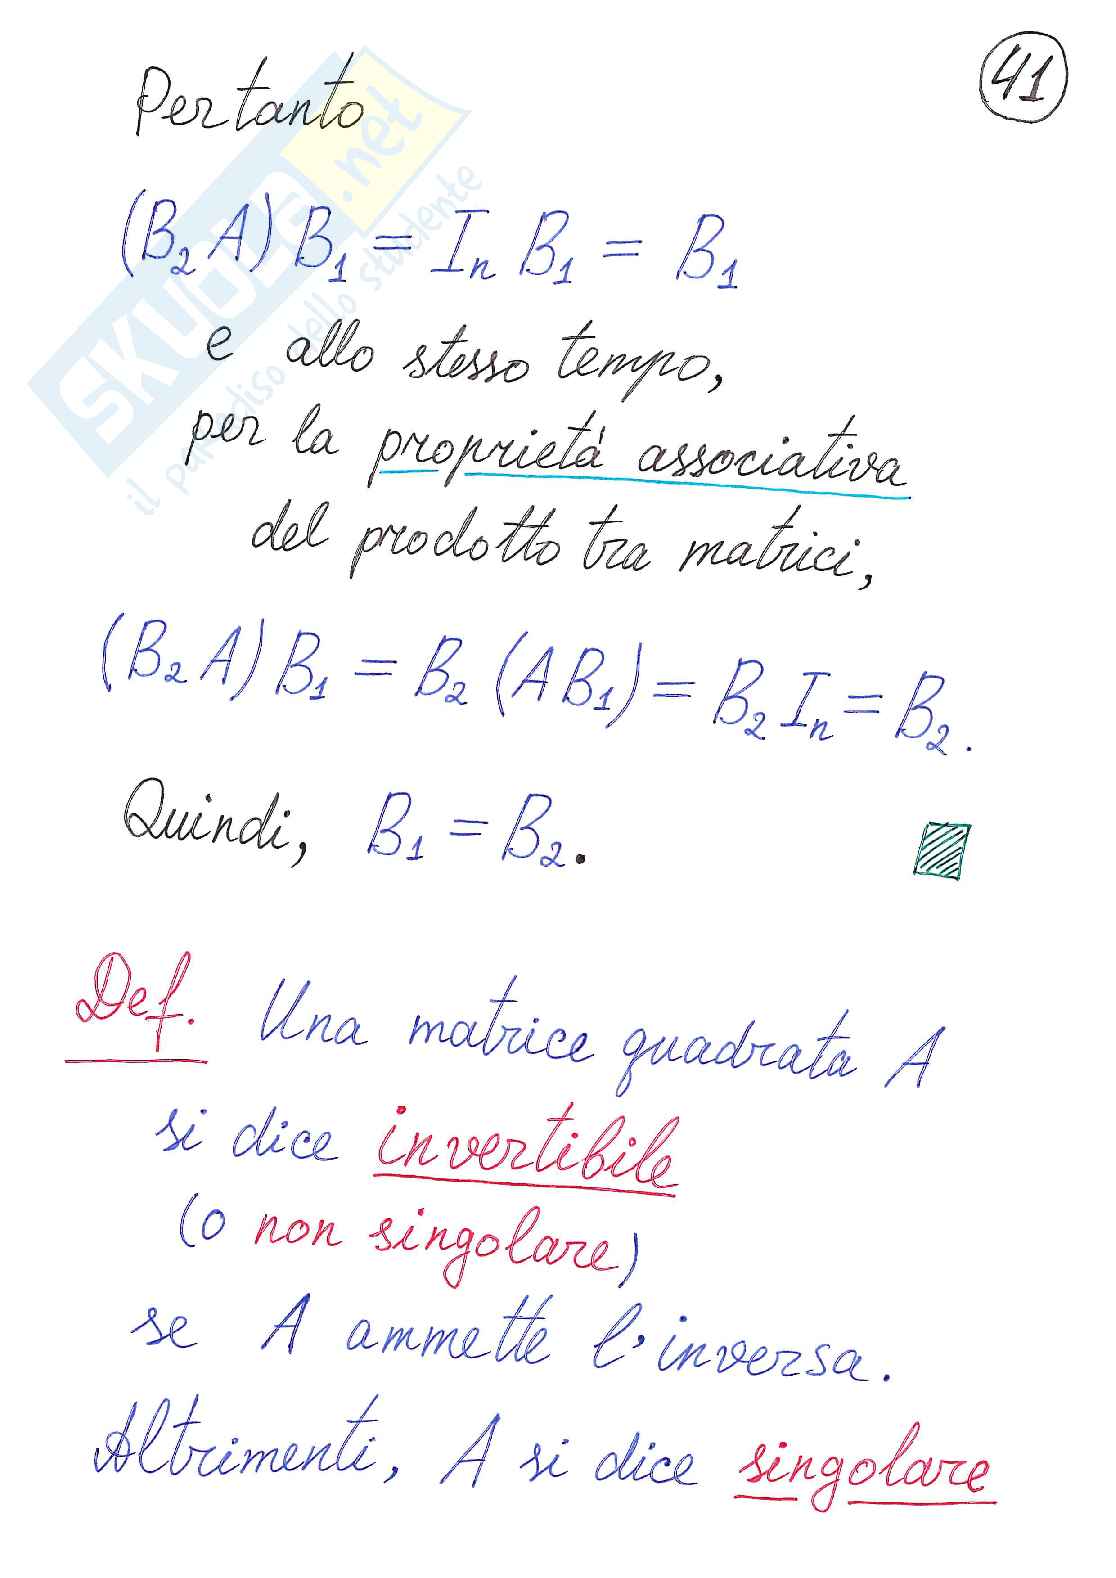 41
Pertanto
(B₂ A) B₁ = Iₙ B₁ = B₁
e allo stesso tempo,
per la proprietá associativa
del prodotto tra matrici,
(B₂ A) B₁ = B₂ (A B₁) = B₂ Iₙ = B₂.
Quindi, B₁ = B₂.
Def. Una matrice quadrata A
si dice invertibile
(o non singolare)
se A ammette l'inversa.
Altrimenti, A si dice singolare
SKUOLA.net
il paradiso dello studente